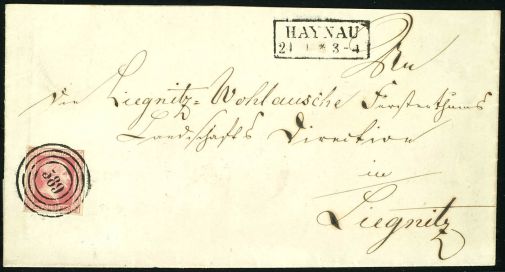 HAYNAU
21 1 * 3-4
An
die Liegnitz=Wohlausche Fürstenthums
Landschafts Direction
in
Liegnitz
589